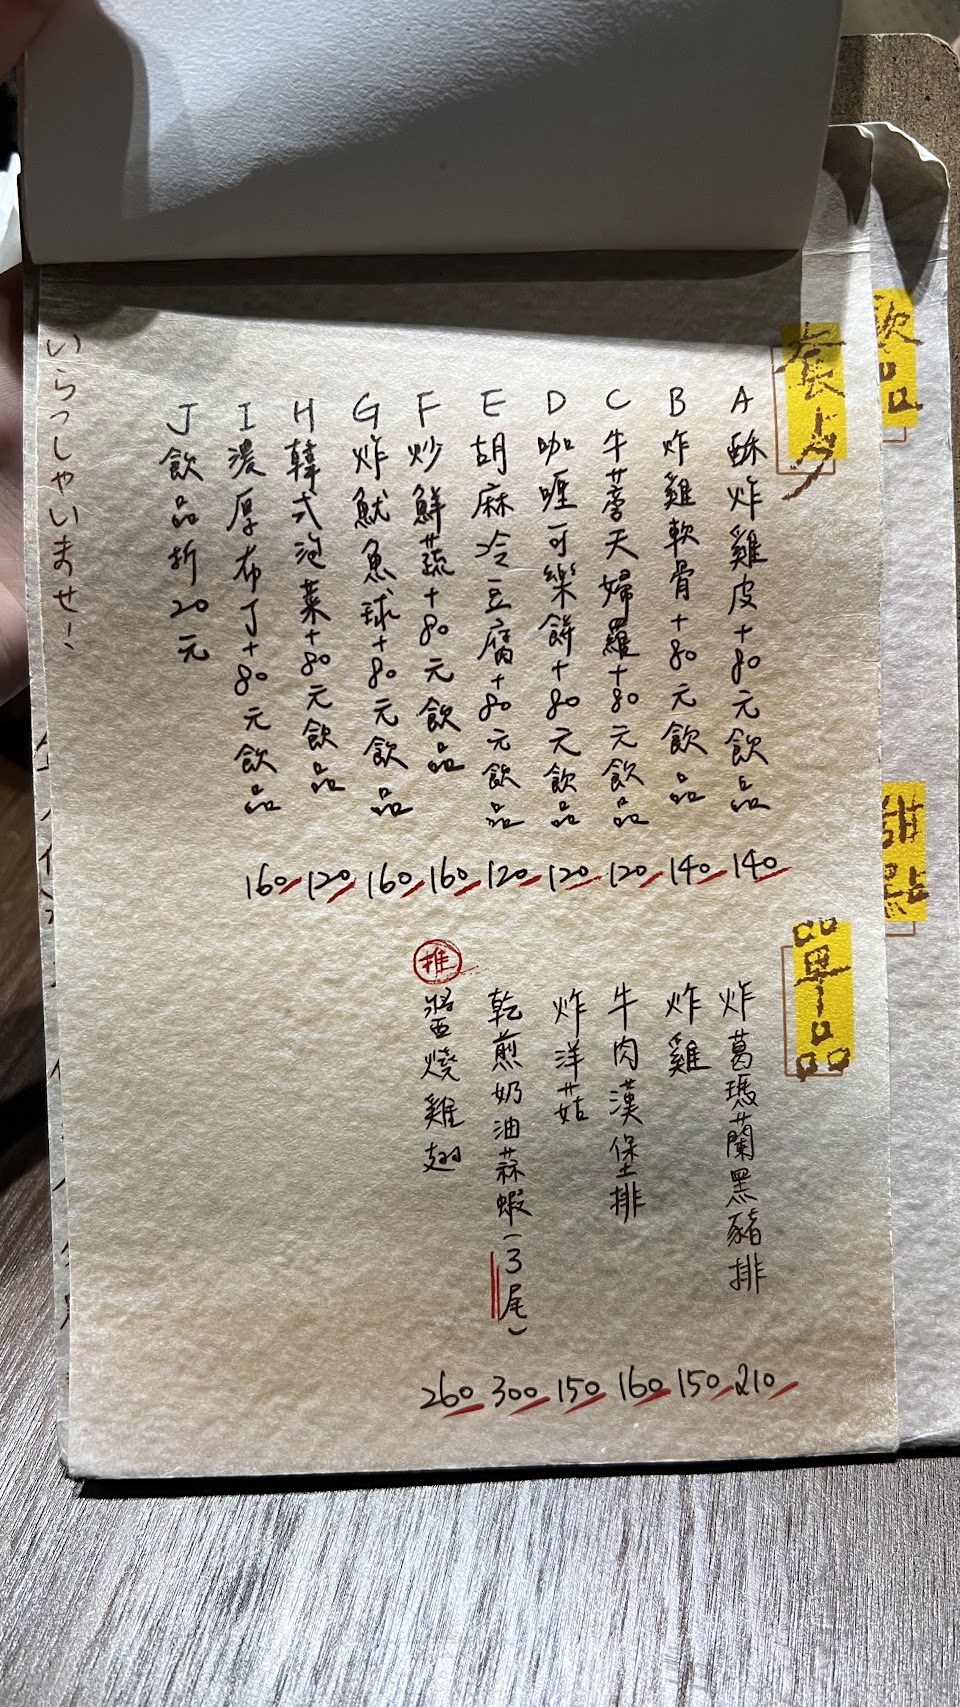 餐点
A 酥炸雞皮+80元飲品 140
B 炸雞軟骨+80元飲品 140
C 牛蒡天婦羅+80元飲品 120
D 咖喱可樂餅+80元飲品 120
E 胡麻冷豆腐+80元飲品 120
F 炒鮮蔬+80元飲品 160
G 炸魷魚球+80元飲品 160
H 韓式泡菜+80元飲品 120
I 濃厚布丁+80元飲品 160
J 飲品折20元
いらっしゃいませ!
單品
炸葛瑪蘭黑豬排 210
炸雞 150
牛肉漢堡排 160
炸洋菇 150
乾煎奶油蒜蝦(3尾) 300
推 醬燒雞翅 260
飲品
甜點